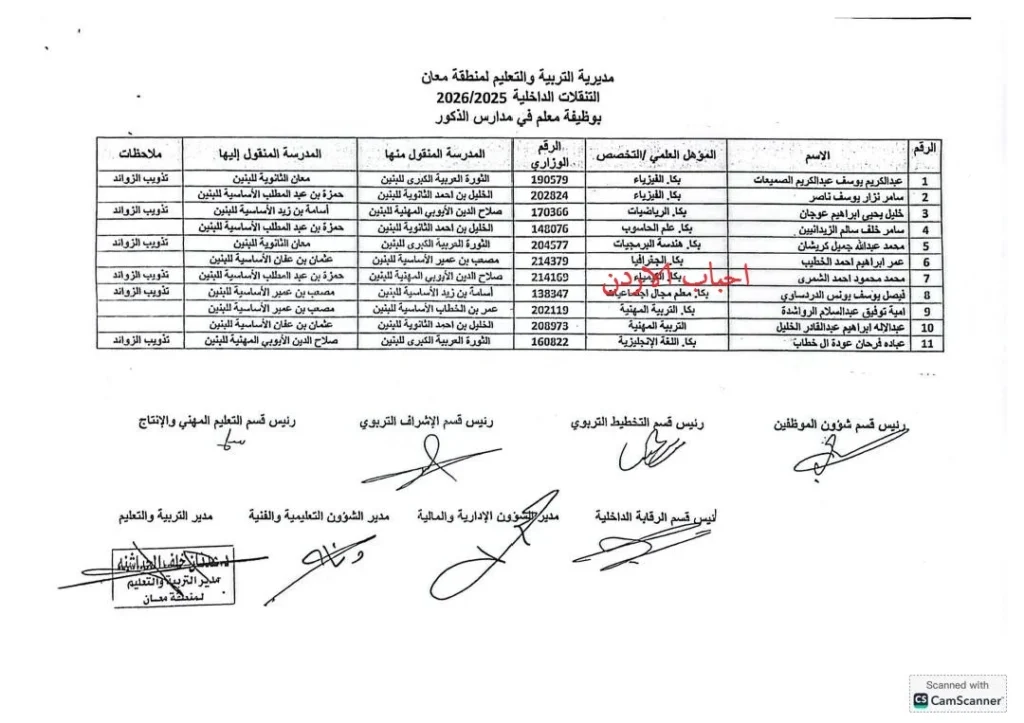 مديرية التربية والتعليم لمنطقة معان
التنقلات الداخلية 2026/2025
بوظيفة معلم في مدارس الذكور
الرقم الاسم المؤهل العلمي /التخصص الرقم الوزاري المدرسة المنقول منها المدرسة المنقول إليها ملاحظات
1 عبدالكريم يوسف عبدالكريم الصميعات بكا. الفيزياء 190579 الثورة العربية الكبرى للبنين معان الثانوية للبنين تذويب الزوائد
2 سامر نزار يوسف ناصر بكا. الفيزياء 202824 الخليل بن احمد الثانوية للبنين حمزة بن عبد المطلب الأساسية للبنين
3 خليل يحيى ابراهيم عوجان بكا. الرياضيات 170366 صلاح الدين الأيوبي المهنية للبنين أسامة بن زيد الأساسية للبنين تذويب الزوائد
4 سامر خلف سالم الزيدانيين بكا. علم الحاسوب 148076 الخليل بن احمد الثانوية للبنين حمزة بن عبد المطلب الأساسية للبنين
5 محمد عبدالله جميل كريشان بكا. هندسة البرمجيات 204577 الثورة العربية الكبرى للبنين معان الثانوية للبنين تذويب الزوائد
6 عمر ابراهيم احمد الخطيب بكا. الجغرافيا 214379 مصعب بن عمير الأساسية للبنين عثمان بن عفان الأساسية للبنين
7 محمد محمود احمد الشمري بكا. 214169 صلاح الدين الأيوبي المهنية للبنين حمزة بن عبد المطلب الأساسية للبنين تذويب الزوائد
احباب الأردن
8 فيصل يوسف يونس الدردساوي بكا. معلم مجال اجتماعيات 138347 أسامة بن زيد الأساسية للبنين مصعب بن عمير الأساسية للبنين تذويب الزوائد
9 امية توفيق عبدالسلام الرواشدة بكا. التربية المهنية 202119 عمر بن الخطاب الأساسية للبنين مصعب بن عمير الأساسية للبنين
10 عبدالاله ابراهيم عبدالقادر الخليل التربية المهنية 208973 الخليل بن احمد الثانوية للبنين عثمان بن عفان الأساسية للبنين
11 عباده فرحان عودة ال خطاب بكا. اللغة الإنجليزية 160822 الثورة العربية الكبرى للبنين صلاح الدين الأيوبي المهنية للبنين تذويب الزوائد
رئيس قسم شؤون الموظفين رئيس قسم التخطيط التربوي رئيس قسم الإشراف التربوي رئيس قسم التعليم المهني والإنتاج
رئيس قسم الرقابة الداخلية مدير الشؤون الإدارية والمالية مدير الشؤون التعليمية والفنية مدير التربية والتعليم
مدير التربية والتعليم
لمنطقة معان
Scanned with
CS CamScanner